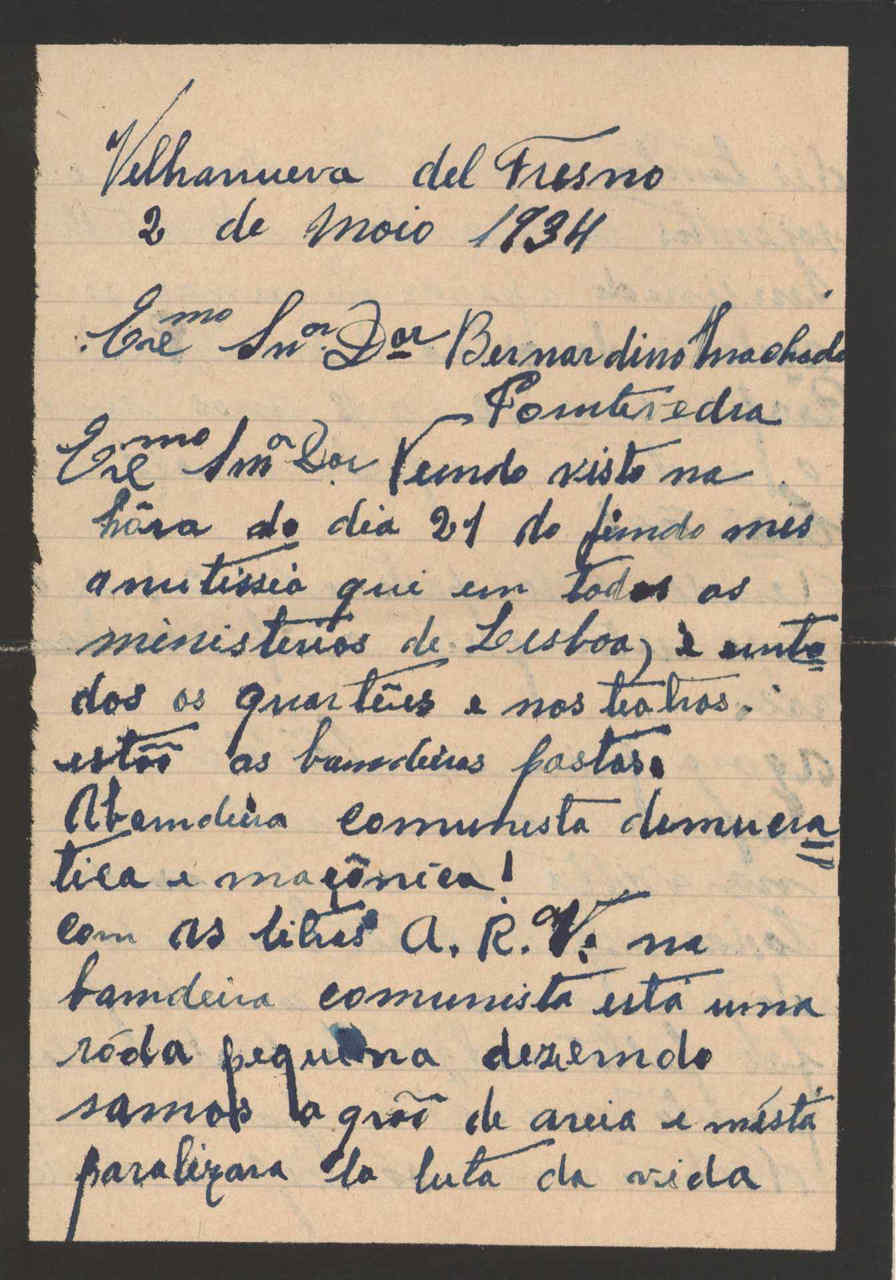 Velhanueva del Fresno
2 de Moio 1934
Exc^mo Snr. D^or Bernardino Machado
Pontevedra
Exc^mo Snr Dor Veindo visto na
hôra do dia 21 do findo mes
anutissia qui em todos os
ministerios de Lesboa, e emto
dos os quartēes e nos teatros.
estõo as bamdeiras postas.
Abamdeira comunista dimucra
tica e maçõnica!
com as litras A. R. V. na
bamdeira comunista está uma
róda pequena dezemdo
samos o grõo de areia e mésta
paralizara la luta da vida